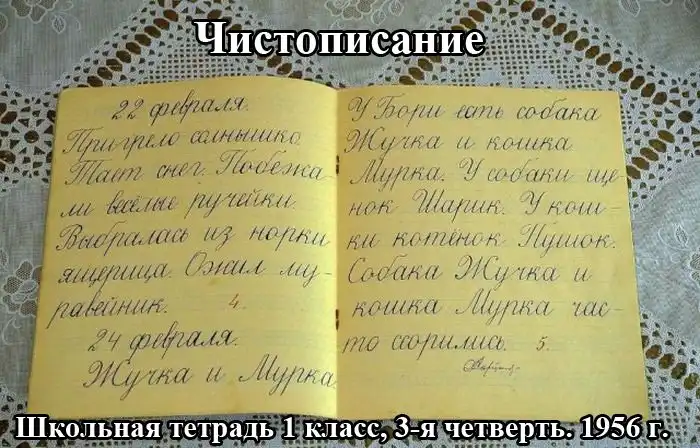 Чистописание
22 февраля.
Пригрело солнышко.
Тает снег. Побежа-
ли весёлые ручейки.
Выбралась из норки
ящерица. Ожил му-
равейник. 4.
24 февраля.
Жучка и Мурка
У Бори есть собака
Жучка и кошка
Мурка. У собаки ще-
нок Шарик. У кош-
ки котёнок Пушок.
Собака Жучка и
кошка Мурка час-
то ссорились. 5.
Школьная тетрадь 1 класс, 3-я четверть. 1956 г.